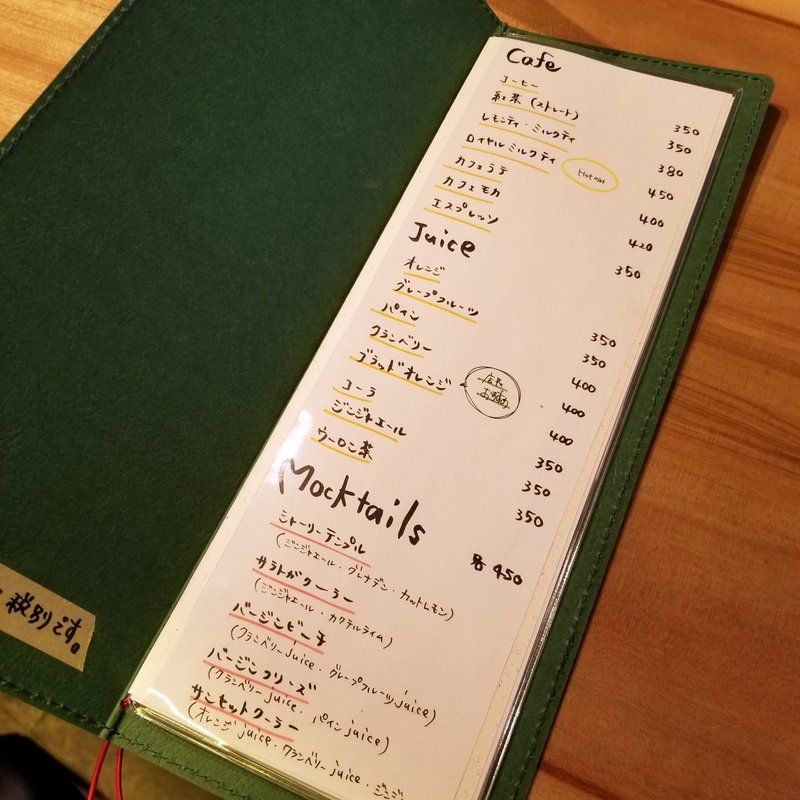 Cafe
コーヒー 350
紅茶 (ストレート) 350
レモンティ・ミルクティ 380
ロイヤルミルクティ Hot only 450
カフェラテ 400
カフェモカ 420
エスプレッソ 350
Juice
オレンジ 350
グレープフルーツ 350
パイン 400
クランベリー 400
ブラッドオレンジ 400
店長
おすすめ
コーラ 350
ジンジャエール 350
ウーロン茶 350
Mocktails 各450
シャーリーテンプル
(ジンジャエール・グレナデン・カットレモン)
サラトガクーラー
(ジンジャエール・カクテルライム)
バージンピーチ
(クランベリーjuice・グレープフルーツjuice)
バージンブリーズ
(クランベリーjuice・パインjuice)
サンセットクーラー
(オレンジjuice・クランベリーjuice・ジンジ
税別です。